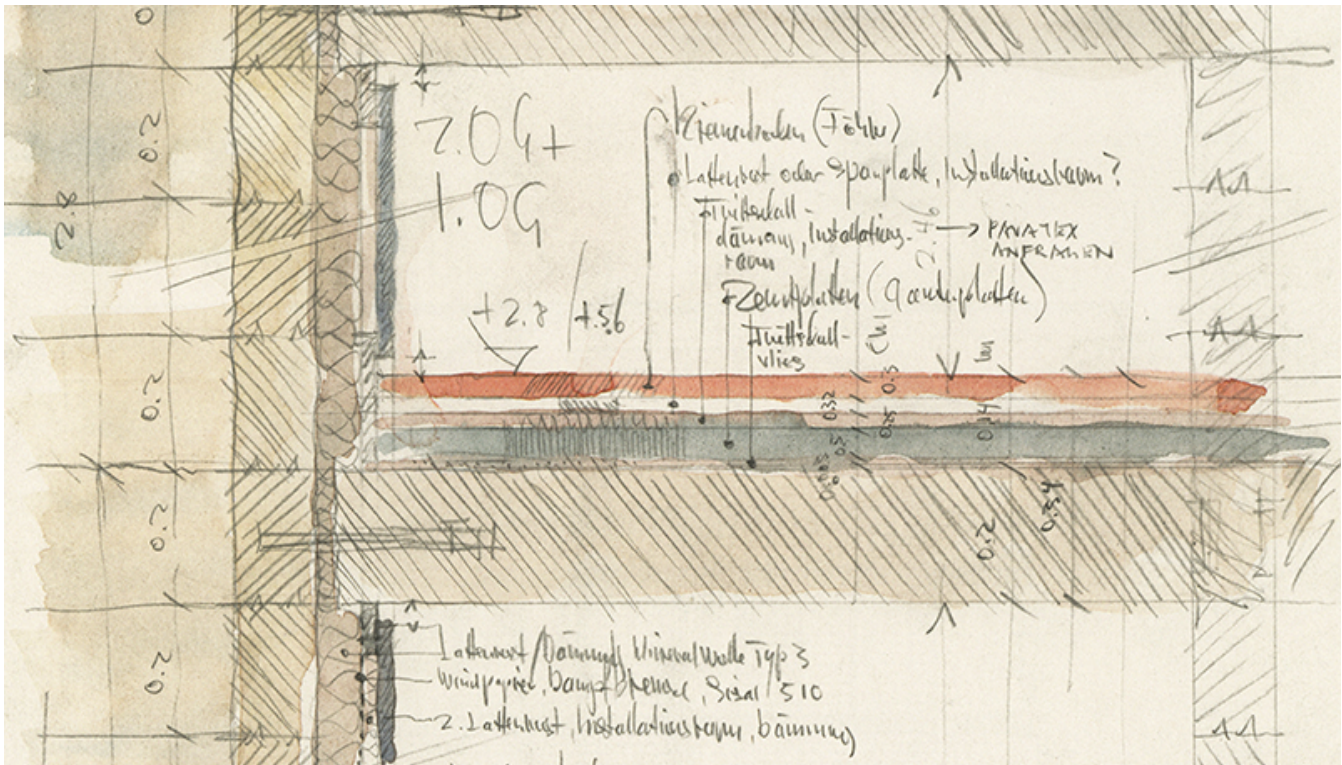 2.OG+
1.OG
Riemenboden (Föhre)
Lattenrost oder Spanplatte, Installationsraum?
Trittschall-
dämmung, Installations-
raum
→ PAVATEX
ANFRAGEN
Zementplatten (Gartenplatten)
Trittschall-
vlies
+2.8 / +5.6
0.2
2.8
0.2
0.2
0.2
0.2
2.46
0.14
0.2
0.34
Lattenrost / Dämmung Mineralwolle Typ 3
Windpapier, Dampfbremse, Sisal 510
2. Lattenrost, Installationsraum, Dämmung